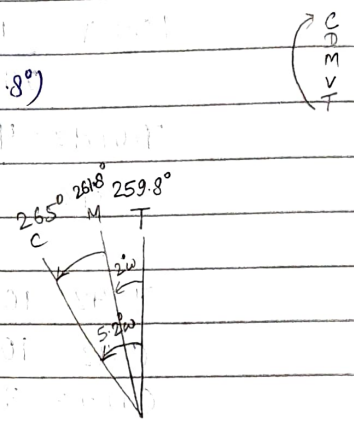 .8°)
C
D
M
V
T
265° 261.8° 259.8°
C M T
2°w
5.2°w